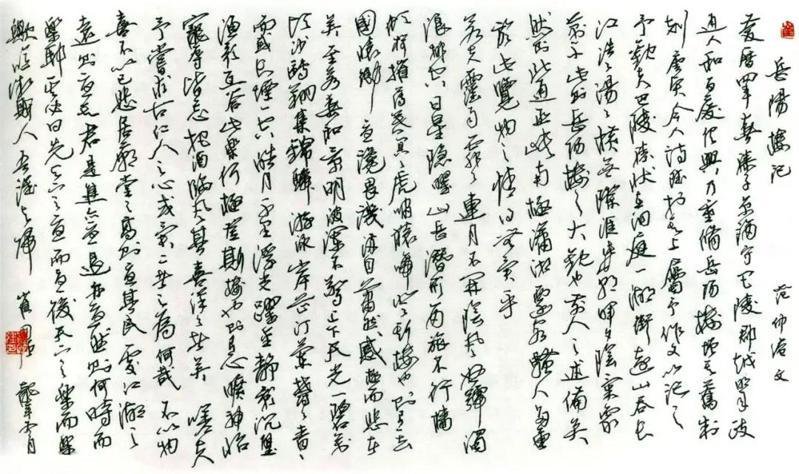 岳陽樓記 范仲淹文
慶曆四年春滕子京謫守巴陵郡越明年政
通人和百廢俱興乃重修岳陽樓增其舊制
刻唐賢今人詩賦於其上屬予作文以記之
予觀夫巴陵勝狀在洞庭一湖銜遠山吞長
江浩浩湯湯橫無際涯朝暉夕陰氣象
萬千此則岳陽樓之大觀也前人之述備矣
然則北通巫峽南極瀟湘遷客騷人多會
於此覽物之情得無異乎
若夫霪雨霏霏連月不開陰風怒號濁
浪排空日星隱曜山岳潛形商旅不行檣
傾楫摧薄暮冥冥虎嘯猿啼登斯樓也則有去
國懷鄉憂讒畏譏滿目蕭然感極而悲者
矣至若春和景明波瀾不驚上下天光一碧萬
頃沙鷗翔集錦鱗游泳岸芷汀蘭郁郁青青
而或長煙一空皓月千里浮光躍金靜影沉璧
漁歌互答此樂何極登斯樓也則有心曠神怡
寵辱皆忘把酒臨風其喜洋洋者矣 嗟夫
予嘗求古仁人之心或異二者之為何哉不以物
喜不以己悲居廟堂之高則憂其民處江湖之
遠則憂其君是進亦憂退亦憂然則何時而
樂耶其必曰先天下之憂而憂後天下之樂而樂
歟噫微斯人吾誰與歸